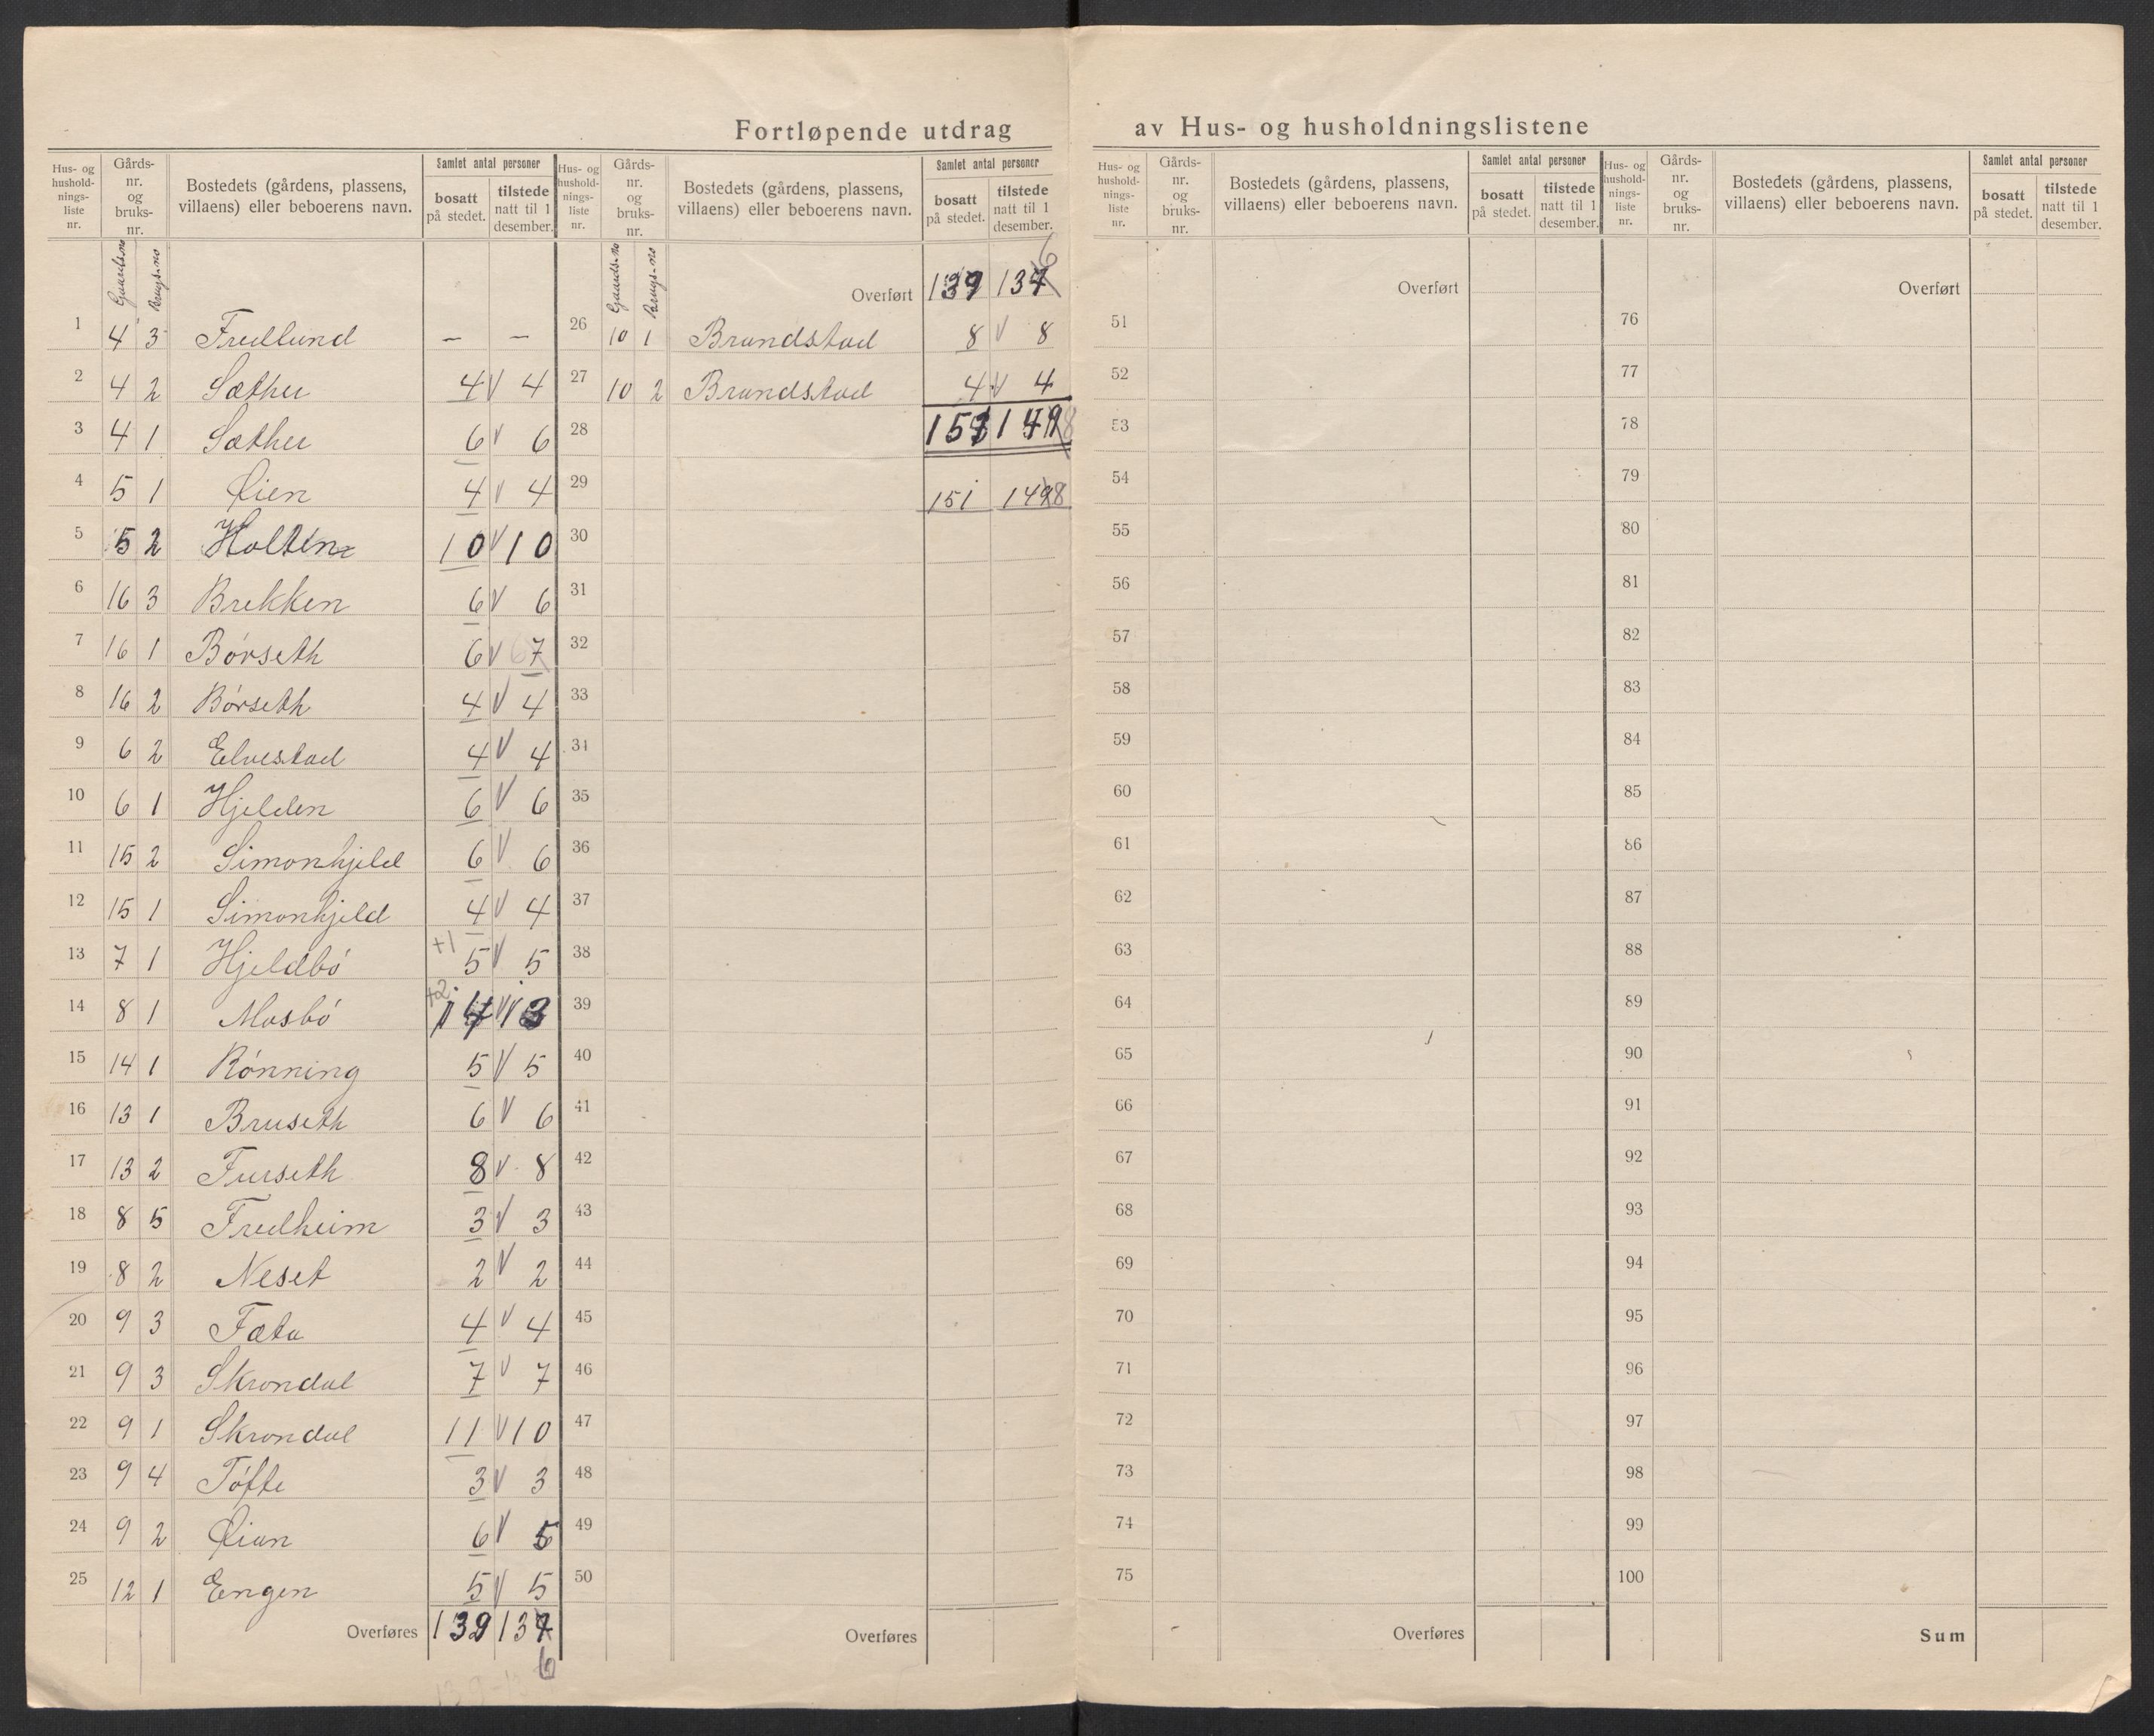 Fortløpende utdrag av Hus- og husholdningslistene
Hus- og husholdningsliste nr.
Gårds-nr. og bruks-nr.
Bostedets (gårdens, plassens, villaens) eller beboerens navn.
Samlet antal personer
bosatt på stedet.
tilstede natt til 1 desember.
Gaards-no Brugs-no
1 4 3 Fredlund – –
2 4 2 Sæther 4 V 4
3 4 1 Sæther 6 V 6
4 5 1 Øien 4 V 4
5 5 2 Holten 10 V 10
6 16 3 Brekken 6 V 6
7 16 1 Børseth 6 V 6 7
8 16 2 Børseth 4 V 4
9 6 2 Elvestad 4 V 4
10 6 1 Hjelden 6 V 6
11 15 2 Simonhjeld 6 V 6
12 15 1 Simonhjeld 4 V 4
13 7 1 Hjeldbø +1 5 V 5
14 8 1 Mosbø +2 14 V 13
15 14 1 Rønning 5 V 5
16 13 1 Bruseth 6 V 6
17 13 2 Furseth 8 V 8
18 8 5 Fredheim 3 V 3
19 8 2 Neset 2 V 2
20 9 3 Fæta 4 V 4
21 9 3 Skrondal 7 V 7
22 9 1 Skrondal 11 V 10
23 9 4 Tøfte 3 V 3
24 9 2 Øian 6 V 5
25 12 1 Engen 5 V 5
Overføres 139 137
6
Hus- og husholdningsliste nr.
Gårds-nr. og bruks-nr.
Bostedets (gårdens, plassens, villaens) eller beboerens navn.
Samlet antal personer
bosatt på stedet.
tilstede natt til 1 desember.
Gaards-no Brugs-no
Overført 139 137 6
26 10 1 Brandstad 8 V 8
27 10 2 Brandstad 4 V 4
28 151 149 8
29 151 149 8
30
31
32
33
34
35
36
37
38
39
40
41
42
43
44
45
46
47
48
49
50
Overføres
Hus- og husholdningsliste nr.
Gårds-nr. og bruks-nr.
Bostedets (gårdens, plassens, villaens) eller beboerens navn.
Samlet antal personer
bosatt på stedet.
tilstede natt til 1 desember.
Overført
51
52
53
54
55
56
57
58
59
60
61
62
63
64
65
66
67
68
69
70
71
72
73
74
75
Overføres
Hus- og husholdningsliste nr.
Gårds-nr. og bruks-nr.
Bostedets (gårdens, plassens, villaens) eller beboerens navn.
Samlet antal personer
bosatt på stedet.
tilstede natt til 1 desember.
Overført
76
77
78
79
80
81
82
83
84
85
86
87
88
89
90
91
92
93
94
95
96
97
98
99
100
Sum